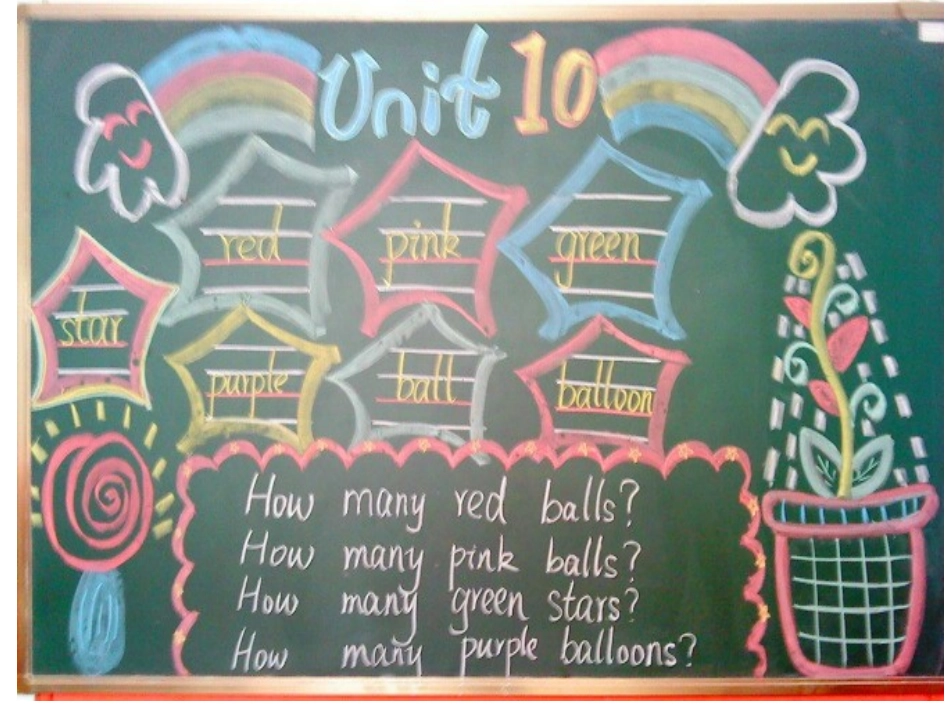 Unit 10
red pink green
star
purple ball balloon
How many red balls?
How many pink balls?
How many green stars?
How many purple balloons?